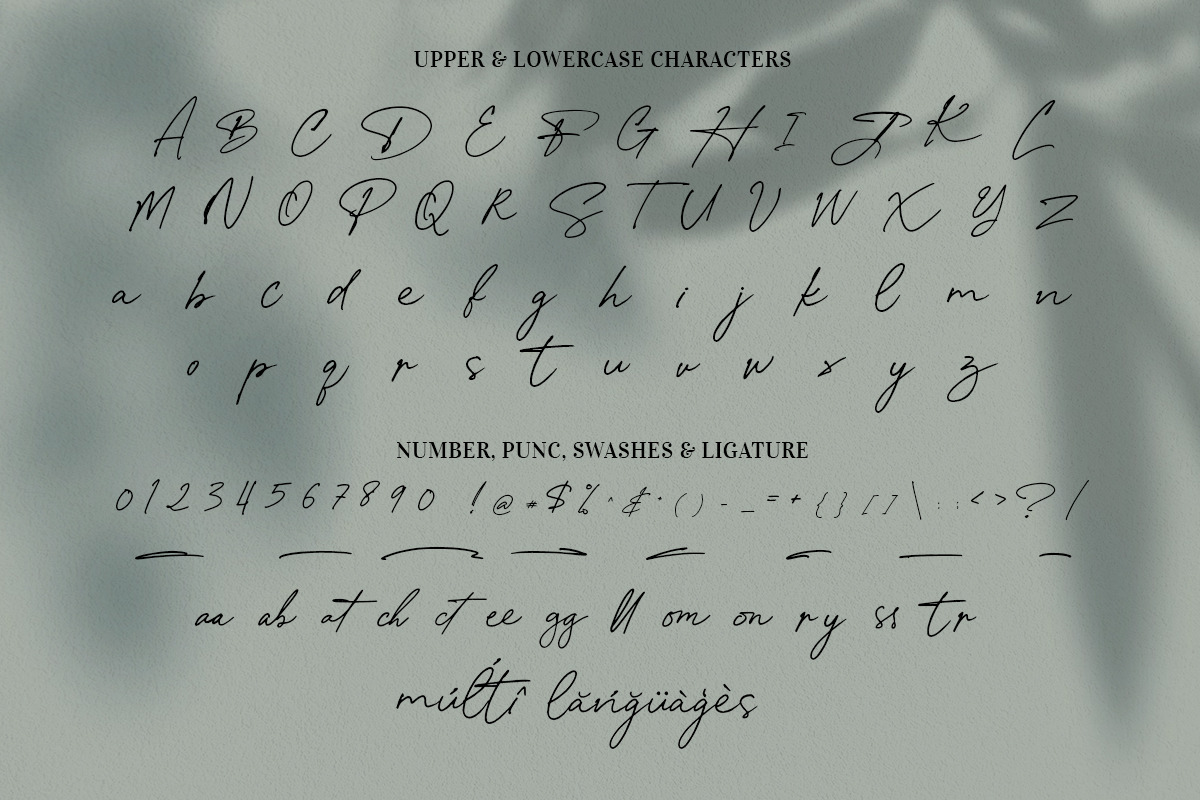 UPPER & LOWERCASE CHARACTERS
A B C D E F G H I J K L
M N O P Q R S T U V W X Y Z
a b c d e f g h i j k l m n
o p q r s t u v w x y z
NUMBER, PUNC, SWASHES & LIGATURE
0 1 2 3 4 5 6 7 8 9 0 ! @ # $ % ^ & * ( ) - _ = + { } [ ] \ : ; < > ? /
aa ab at ch ct ee gg ll om on ry ss tr
múĺtî lăńğüàģès